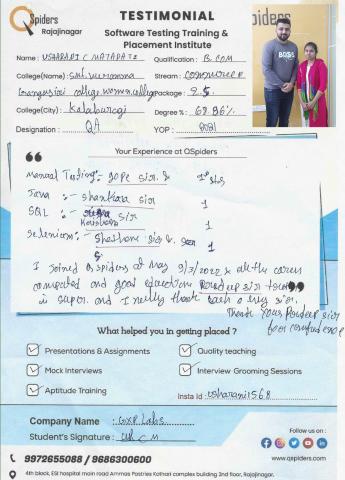 QSpiders
Rajajinagar
TESTIMONIAL
Software Testing Training &
Placement Institute
Name : USHARANI C MATAPATI Qualification : B.COM
College(Name) : Smt. Veeramma Stream : Commerce
Gangasiri college women college Package : 2.5
College(City) : Kalaburagi Degree % : 68.96%
Designation : QA YOP : 2021
Your Experience at QSpiders
Manual Testing :- gope sir &
Java :- Shankara sir 1
SQL :- sir 1
Selenium :- sir & 1
I joined Qspiders at May 9/3/2022 & all the
and good education Pradeep sir
is super. and I really thank each & every sir.
Thank you Pradeep sir
for
What helped you in getting placed ?
Presentations & Assignments Quality teaching
Mock Interviews Interview Grooming Sessions
Aptitude Training Insta Id : usharani1568
Company Name : GXP Labs
Student's Signature : CM
Follow us on :
9972655088 / 9686300600 www.qspiders.com
4th block, ESI hospital main road Ammas Pastries Kothari complex building 2nd floor, Rajajinagar.